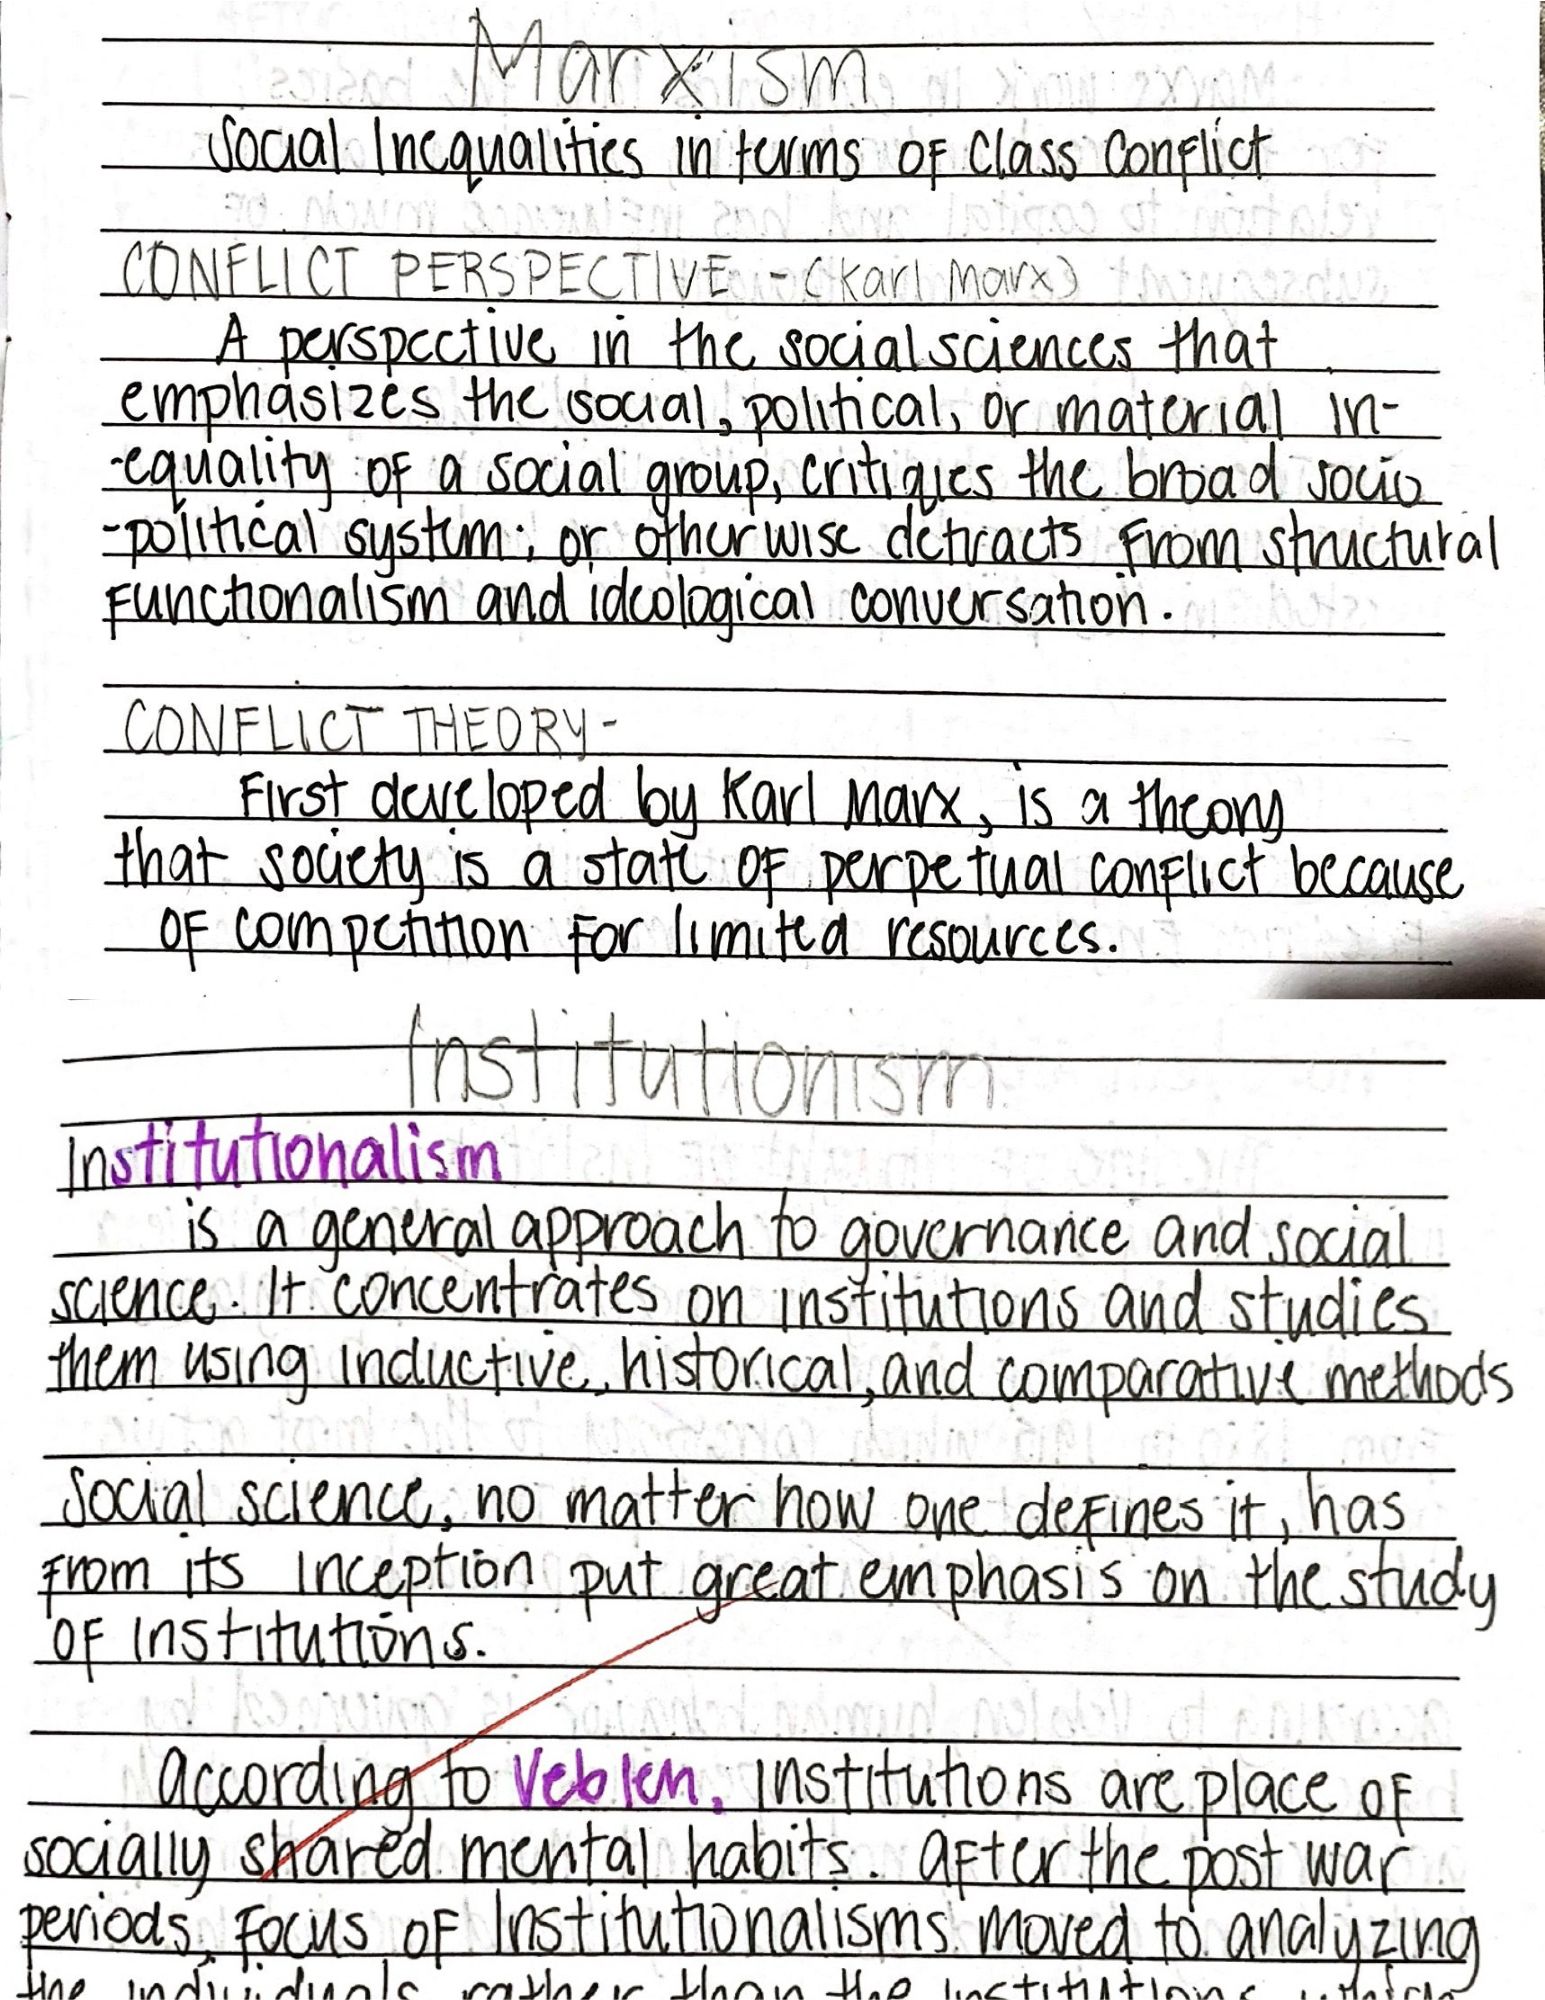 Marxism
Social Inequalities in terms of Class Conflict
CONFLICT PERSPECTIVE - (Karl Marx)
A perspective in the social sciences that
emphasizes the social, political, or material in-
-equality of a social group, critiques the broad socio
-political system; or otherwise detracts from structural
functionalism and ideological conversation.
CONFLICT THEORY-
First developed by Karl Marx, is a theory
that society is a state of perpetual conflict because
of competition for limited resources.
Institutionism
Institutionalism
is a general approach to governance and social
science. It concentrates on institutions and studies
them using inductive, historical, and comparative methods
Social science, no matter how one defines it, has
from its inception put great emphasis on the study
of institutions.
According to Veblen, institutions are place of
socially shared mental habits. After the post war
periods, focus of Institutionalisms moved to analyzing
the individuals rather than the institutions which